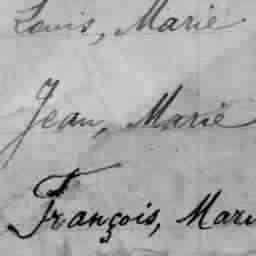 Louis, Marie
Jean, Marie
François, Mari